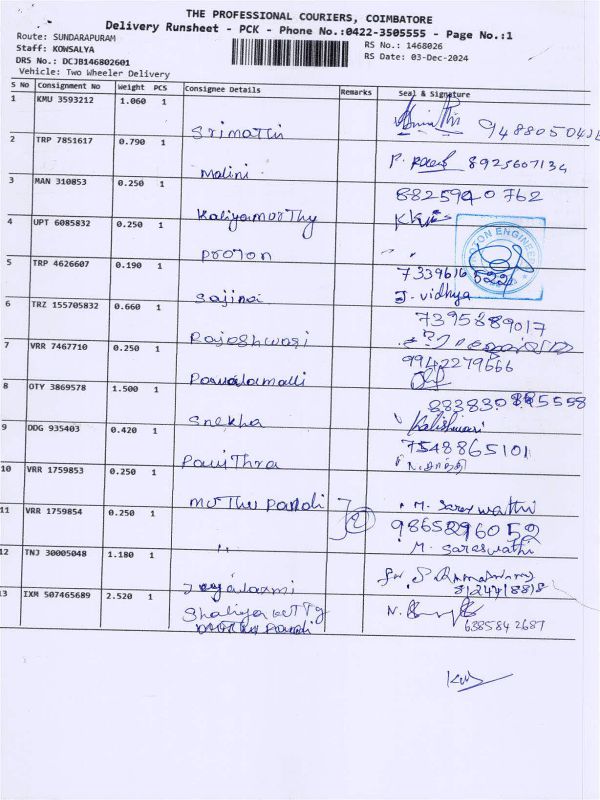 THE PROFESSIONAL COURIERS, COIMBATORE
Delivery Runsheet - PCK - Phone No.:0422-3505555 - Page No.:1
Route: SUNDARAPURAM
RS No.: 1468026
Staff: KOWSALYA
RS Date: 03-Dec-2024
DRS No.: DCJB146802601
Vehicle: Two Wheeler Delivery
S No Consignment No Weight PCS Consignee Details Remarks Seal & Signature
1 KMU 3593212 1.060 1 Srimathi
2 TRP 7851617 0.790 1 Malini 8925607134
3 MAN 310853 0.250 1 Kaliyamorthy 8825940762
4 UPT 6085832 0.250 1 Proton
5 TRP 4626607 0.190 1 Sajina 7339616522
J. vidhya
6 TRZ 155705832 0.660 1 Rajeshwari 7395889017
7 VRR 7467710 0.250 1 9942279666
8 OTY 3869578 1.500 1 Snekha
Kalishwari
9 DDG 935403 0.420 1 Pavithra 7548865101
10 VRR 1759853 0.250 1 Muthu Pandi M. Saraswathi
11 VRR 1759854 0.250 1 " 9865296052
M. Saraswathi
12 TNJ 30005048 1.180 1 Jeyalaxmi
13 IXM 507465689 2.520 1 6385842687